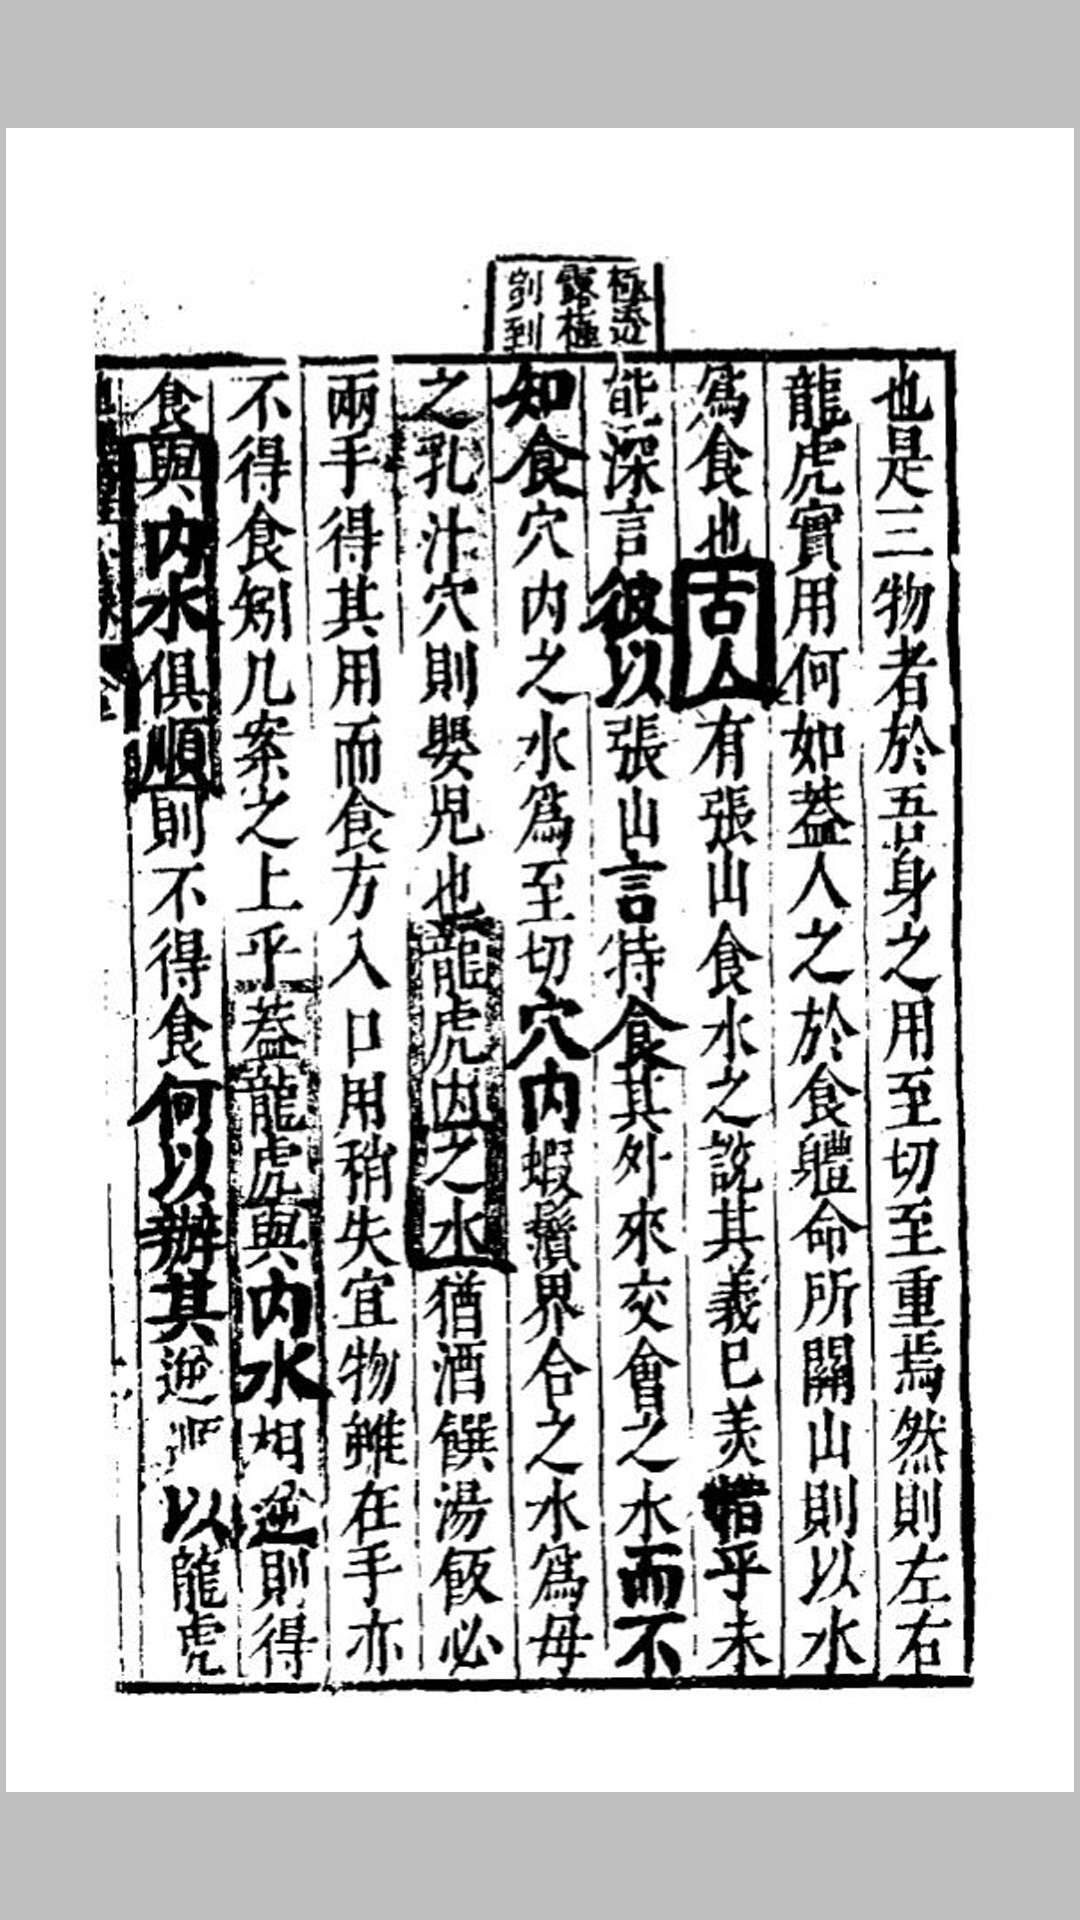 極透
露極
到
也是三物者於吾身之用至切至重焉然則左右
龍虎實用何如蓋人之於食軆命所關山則以水
爲食也古人有張山食水之說其義已美惜乎未
能深言彼以張山言特食其外來交會之水而不
知食穴内之水爲至切穴内蝦鬚界合之水爲母
之乳汁穴則嬰児也龍虎内之水猶酒饌湯飯必
兩手得其用而食方入口用稍失宜物雖在手亦
不得食矧几案之上乎蓋龍虎與内水相逆則得
食與内水俱順則不得食何以辦其逆順以龍虎